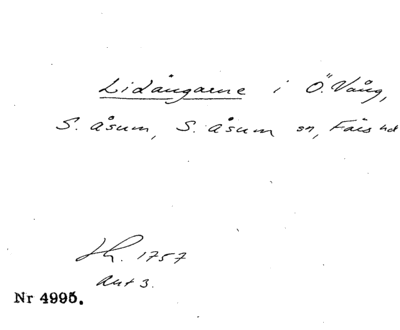 Lidängarne i Ö. Vång,
S. Åsum, S. Åsum sn, Färs hd
Lh. 1757
Akt 3.
Nr 4995.